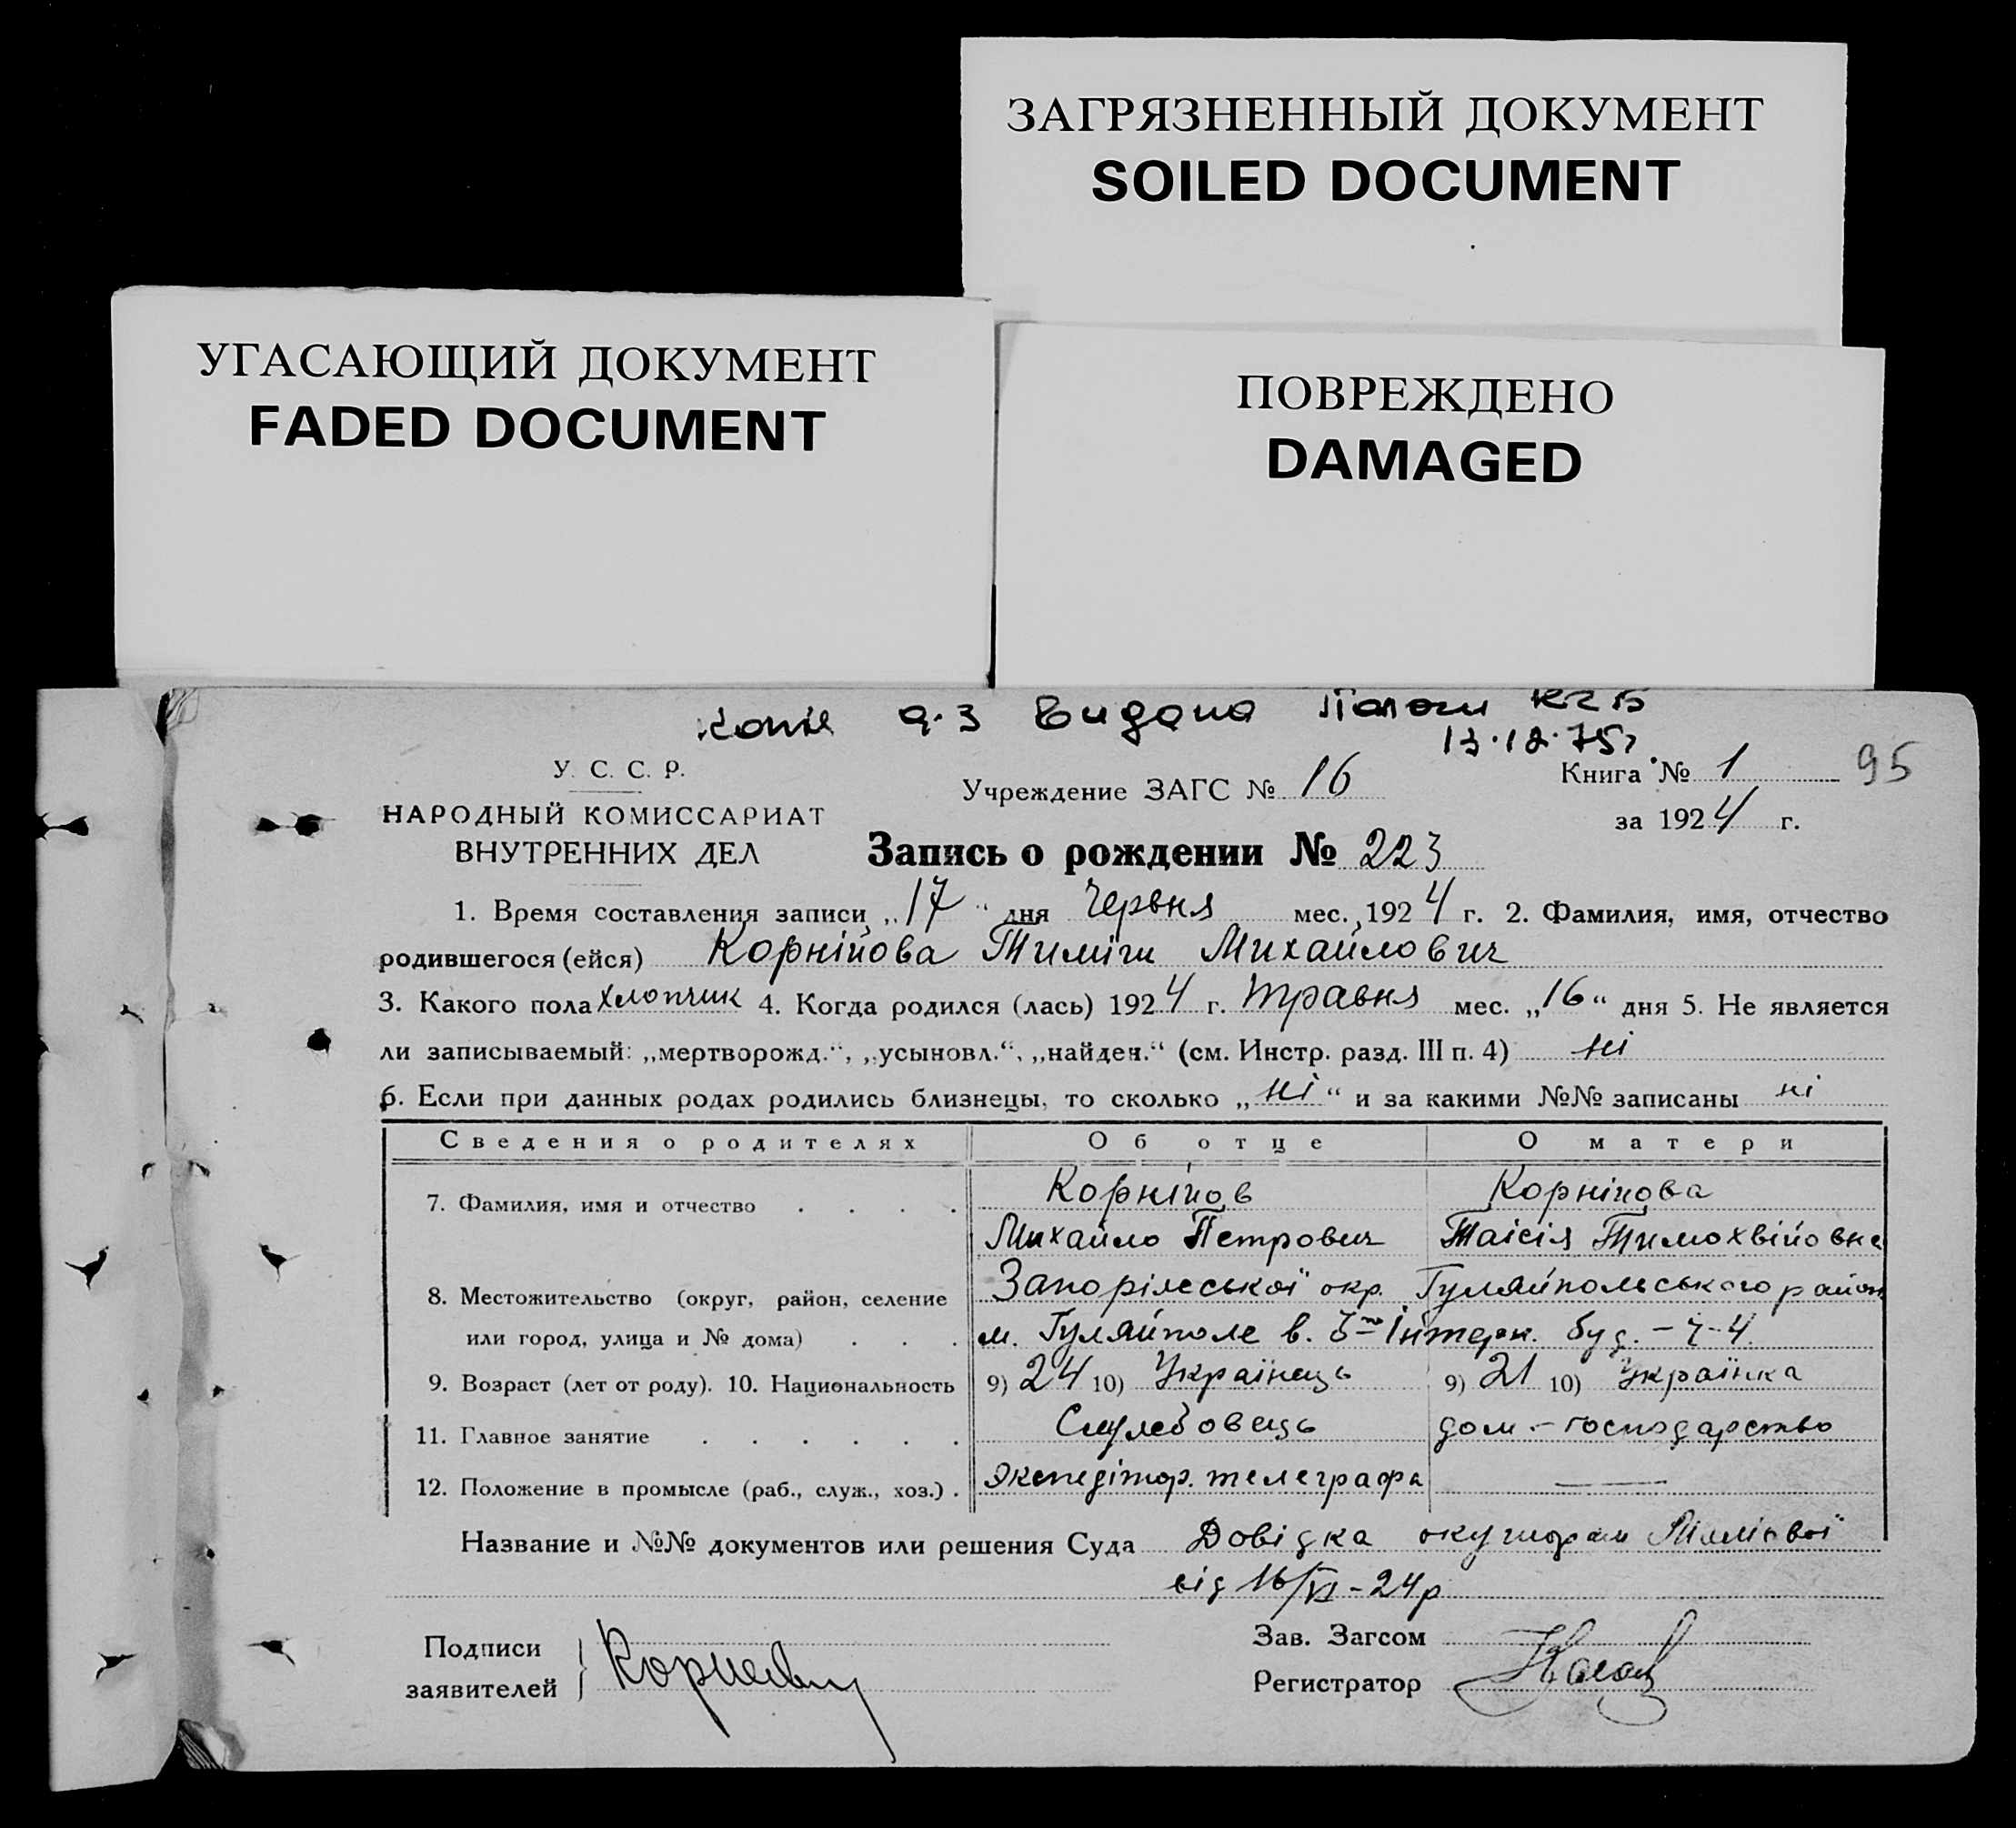 ЗАГРЯЗНЕННЫЙ ДОКУМЕНТ
SOILED DOCUMENT
УГАСАЮЩИЙ ДОКУМЕНТ
FADED DOCUMENT
ПОВРЕЖДЕНО
DAMAGED
Копія а.з Видана
13.12.75г
У. С. С. Р.
НАРОДНЫЙ КОМИССАРИАТ
ВНУТРЕННИХ ДЕЛ
Учреждение ЗАГС № 16
Книга № 1 95
за 1924 г.
Запись о рождении № 223
1. Время составления записи „17“ дня Червня мес. 1924 г. 2. Фамилия, имя, отчество
родившегося (ейся) Корнійова Михайлович
3. Какого пола хлопчик 4. Когда родился (лась) 1924 г. травня мес. „16“ дня 5. Не является
ли записываемый: „мертворожд.“, „усыновл.“, „найден.“ (см. Инстр. разд. III п. 4) ні
6. Если при данных родах родились близнецы, то сколько „ні“ и за какими №№ записаны ні
Сведения о родителях Об отце О матери
7. Фамилия, имя и отчество Корнійов Корнійова
Михайло Петрович Таісія Тимохвійовна
8. Местожительство (округ, район, селение Запоріжської окр. Гуляйпольського район
или город, улица и № дома) м. Гуляйполе в. 3го Інтерн. буд.
9. Возраст (лет от роду). 10. Национальность 9) 24 10) Українець 9) 21 10) Українка
11. Главное занятие Службовець дом.-господарство
12. Положение в промысле (раб., служ., хоз.) Экспедітор. телеграфа —
Название и №№ документов или решения Суда Довідка
від 16/VI-24р
Подписи
заявителей
Зав. Загсом
Регистратор